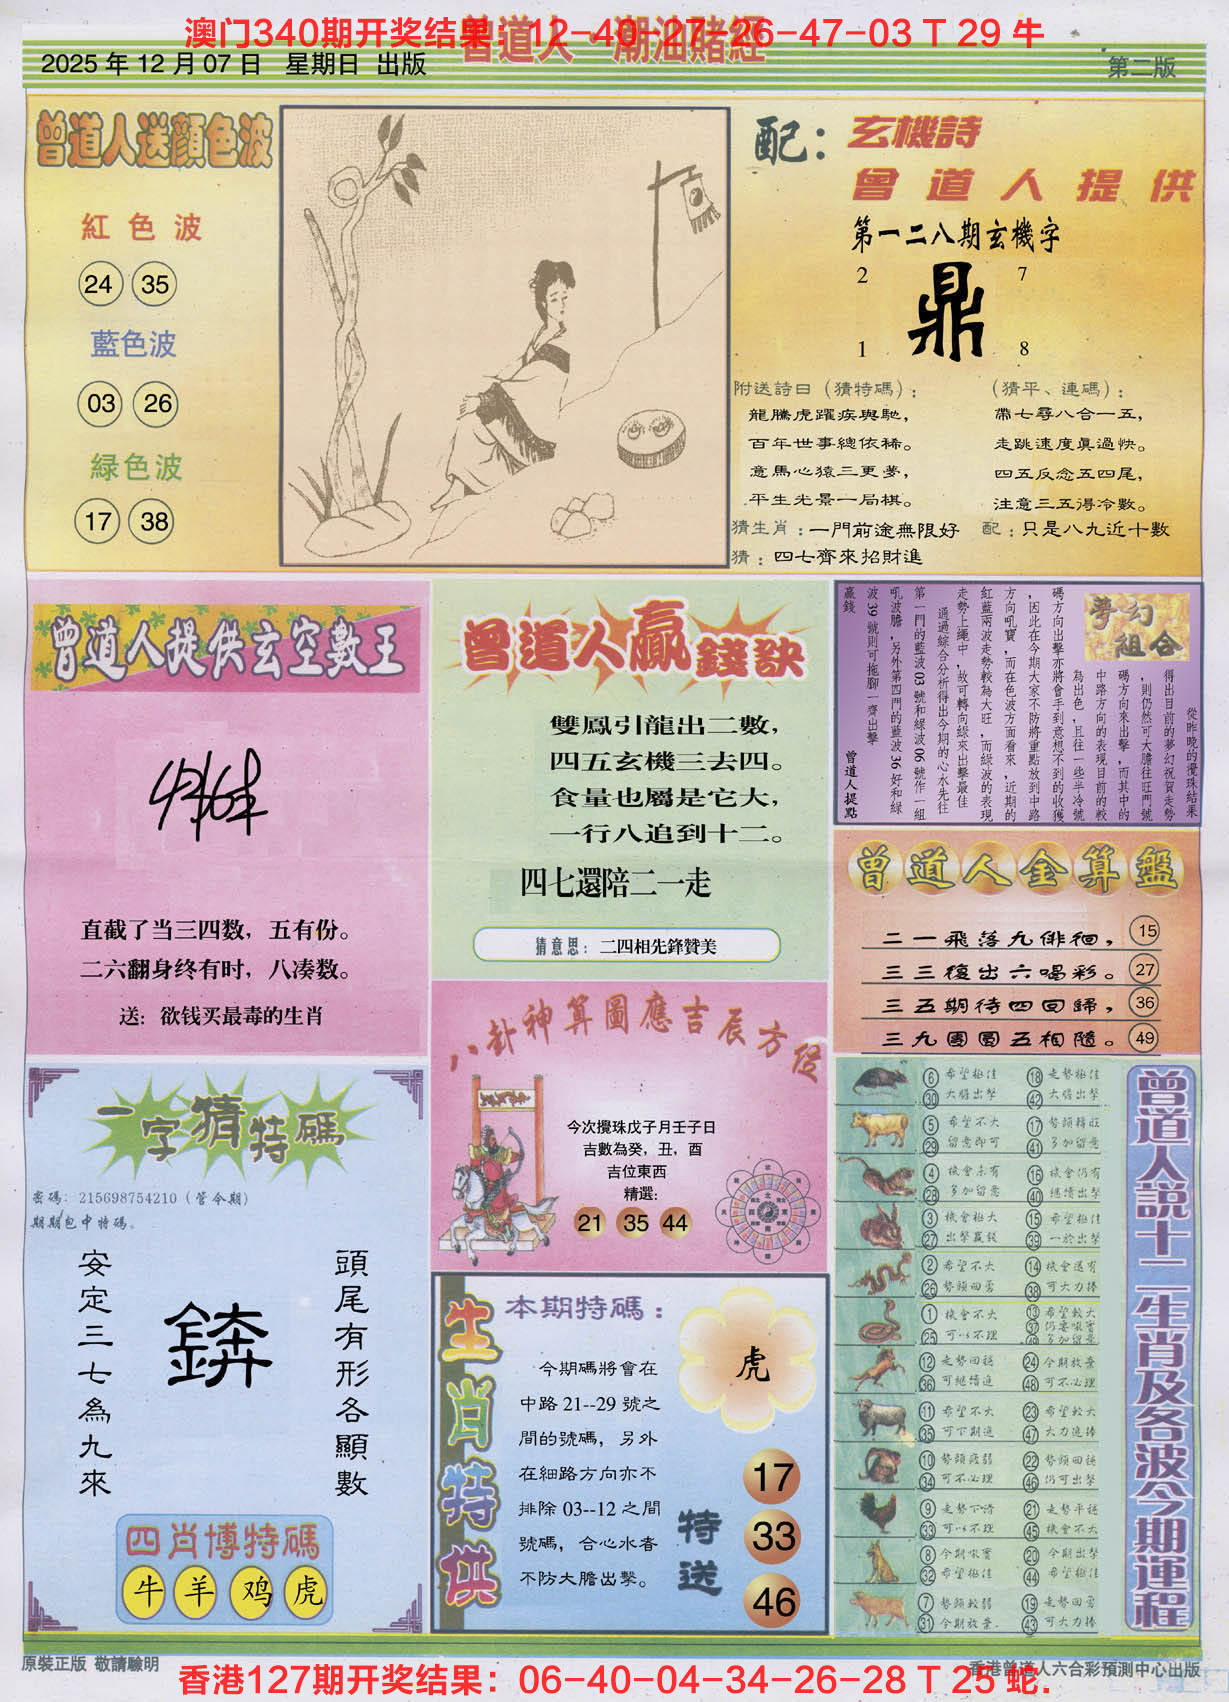 澳门340期开奖结果：12-40-27-26-47-03 T 29 牛
曾道人·潮汕賭經
2025 年 12 月 07 日 星期日 出版
第二版
曾道人送顔色波
紅色波
24 35
藍色波
03 26
緑色波
17 38
配：
玄機詩
曾道人提供
第一二八期玄機字
2 7
鼎
1 8
附送詩曰（猜特碼）：
龍騰虎躍疾與馳，
百年世事總依稀。
意馬心猿三更夢，
平生光景一局棋。
（猜平、連碼）：
帶七尋八合一五，
走跳速度真過快。
四五反念五四尾，
注意三五得冷數。
猜生肖：一門前途無限好 配：只是八九近十數
猜：四七齊來招財進
曾道人提供玄空數王
直截了当三四数，五有份。
二六翻身终有时，八凑数。
送：欲钱买最毒的生肖
曾道人贏錢訣
雙鳳引龍出二數，
四五玄機三去四。
食量也屬是它大，
一行八追到十二。
四七還陪二一走
猜意思：二四相先鋒贊美
夢幻組合
從昨晚的攪珠結果
得出目前的夢幻祝賀走勢
，則仍然可大膽往旺門號
碼方向來出擊，而其中的
中路方向的表現目前的較
為出色，且往一些半冷號
碼方向出擊亦將會手到意想不到的收獲
，因此在今期大家不防將重點放到中路
方向吼寶，而在色波方面看來，近期的
紅藍兩波走勢較為大旺，而綠波的表現
走勢上繩中，故可轉向綠來出擊最佳
通過綜合分析得出今期的心水先往
第一門的藍波03號和綠波06號作一組
吼波膽，另外第四門的藍波36好和綠
波39號則可拖腳一齊出擊
贏錢
曾道人提點
曾道人金算盤
二一飛落九俳徊，15
三三復出六喝彩。27
三五期待四回歸，36
三九團圓五相隨。49
八卦神算圖應吉辰方位
今次攪珠戊子月壬子日
吉數為癸，丑，酉
吉位東西
精選：
21 35 44
一字猜特碼
密碼：215698754210（管今期）
期期包中特碼。
頭尾有形各顯數
安定三七為九來
四肖博特碼
牛 羊 鸡 虎
生肖特供
本期特碼：
今期碼將會在
中路 21--29 號之
間的號碼，另外
在細路方向亦不
排除 03--12 之間
號碼，合心水者
不防大膽出擊。
虎
特送
17
33
46
曾道人説十二生肖及各波今期運程
6 希望極佳 18 走勢極佳
30 大膽出擊 42 大膽出擊
5 希望不大 17 勢頭轉旺
29 留意即可 41 多加留意
4 機會未有 16 機會仍有
28 多加留意 40 繼續出擊
3 機會極大 15 希望極佳
27 出擊贏錢 39 一於出擊
2 希望不大 14 機會還有
26 勢頭回勇 38 可大力捧
1 機會不大 13 希望較大
25 可以不理 37 仍要吼寶
49 多加留意
12 走勢回穩 24 今期放棄
36 可繼續追 48 可不必理
11 希望不大 23 希望較大
35 可下期追 47 大力追捧
10 勢頭疲弱 22 勢頭回穩
34 可不必理 46 仍可出擊
9 走勢下滑 21 走勢平穩
33 可以不理 45 機會不大
8 今期吼寶 20 今期出擊
32 希望極佳 44 希望極佳
7 勢頭較弱 19 走勢回勇
31 今期放棄. 43 可大力捧
原裝正版 敬請驗明
香港曾道人六合彩預測中心出版
香港127期开奖结果：06-40-04-34-26-28 T 25 蛇.